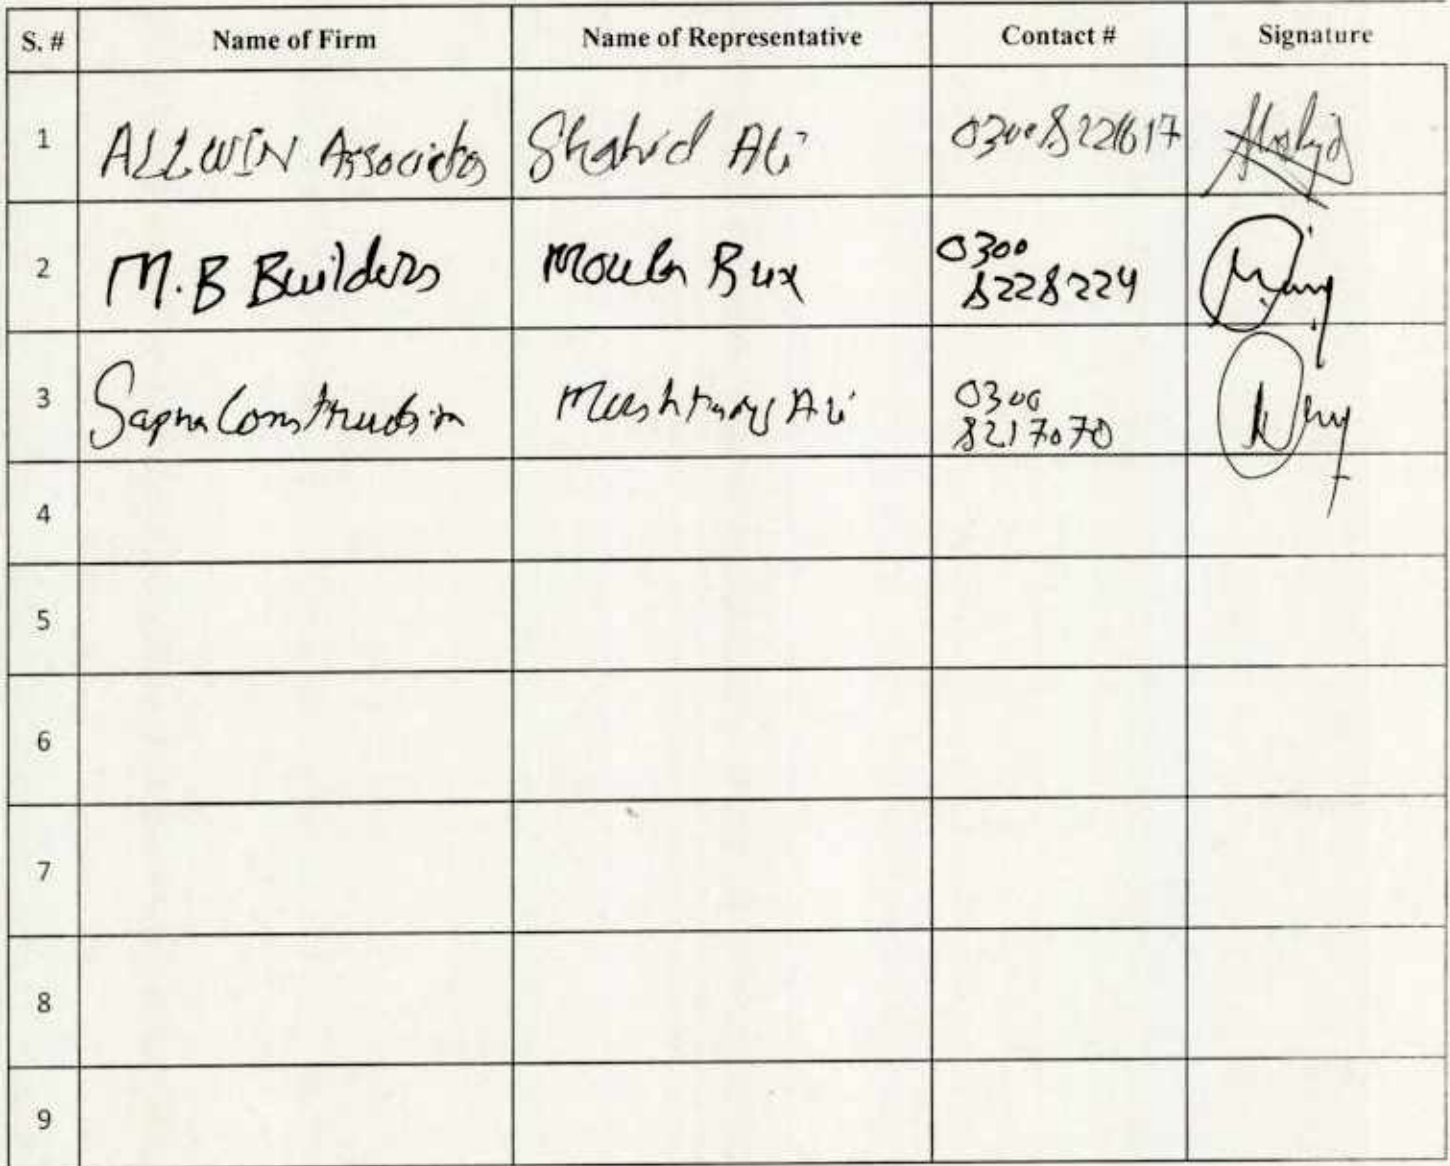 S. # Name of Firm Name of Representative Contact # Signature
1 ALLWIN Associates Shahid Ali
2 M.B Builders Moula Bux 0300
8228224
3 Sapna Construction Mushtaq Ali 0300
8217070
4
5
6
7
8
9